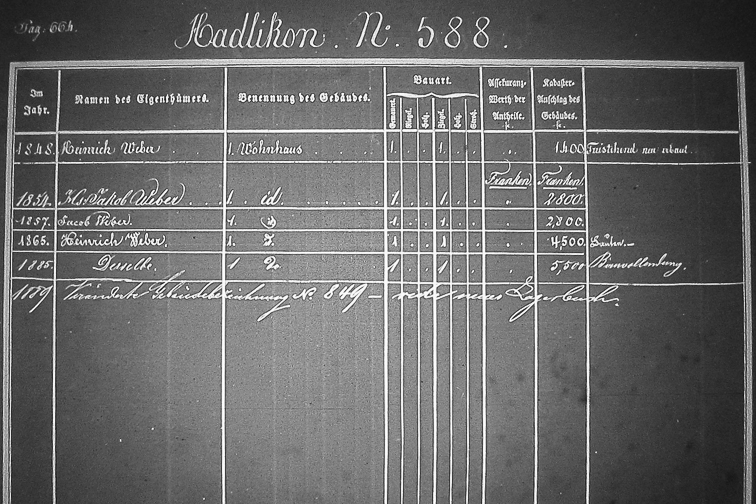 Pag. 664.
Hadlikon. No. 588.
Im Jahr. Namen des Eigenthümers. Benennung des Gebäudes. Bauart. Gemauert. Riegel. Holz. Ziegel. Holz. Stroh. Assekuranz-Werth der Antheile. fr. Kadaster-Anschlag des Gebäudes. fr.
1848. Heinrich Weber 1. Wohnhaus 1. 1. 1400 neu erbaut.
Franken. Franken.
1854. Hs. Jakob Weber 1. id. 1. 1. 2800.
1857. Jacob Weber. 1. 1. 1. 2,800.
1865. Heinrich Weber. 1. 1. 1. 4,500. Bauten.
1885. Derselbe. 1 Do 1 1 5,500 Bauvollendung.
1889 Veränderte Gebäudebezeichnung No. 849 – neues Lagerbuch.